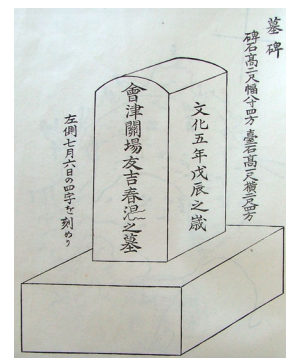 墓碑
碑石高二尺幅八寸四方 臺石高一尺横二尺四方
文化五年戊辰之歳
會津關場友吉春温之墓
左側七月六日の四字を刻めり